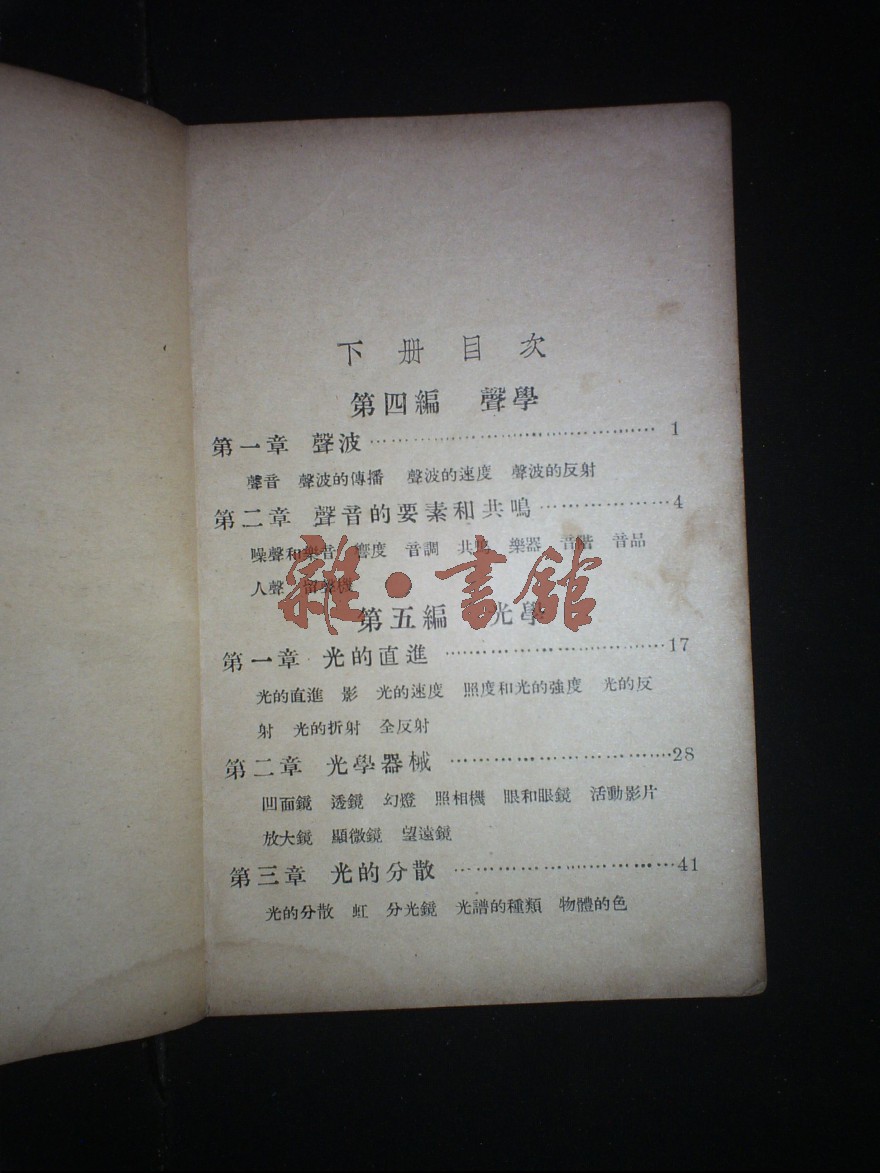 下册目次
第四編 聲學
第一章 聲波………………………………… 1
聲音 聲波的傳播 聲波的速度 聲波的反射
第二章 聲音的要素和共鳴………………4
噪聲和樂音 響度 音調 共鳴 樂器 音階 音品
人聲 留聲機
雜·書館
第五編 光學
第一章 光的直進 …………………………17
光的直進 影 光的速度 照度和光的強度 光的反
射 光的折射 全反射
第二章 光學器械 …………………………28
凹面鏡 透鏡 幻燈 照相機 眼和眼鏡 活動影片
放大鏡 顯微鏡 望遠鏡
第三章 光的分散 …………………………41
光的分散 虹 分光鏡 光譜的種類 物體的色